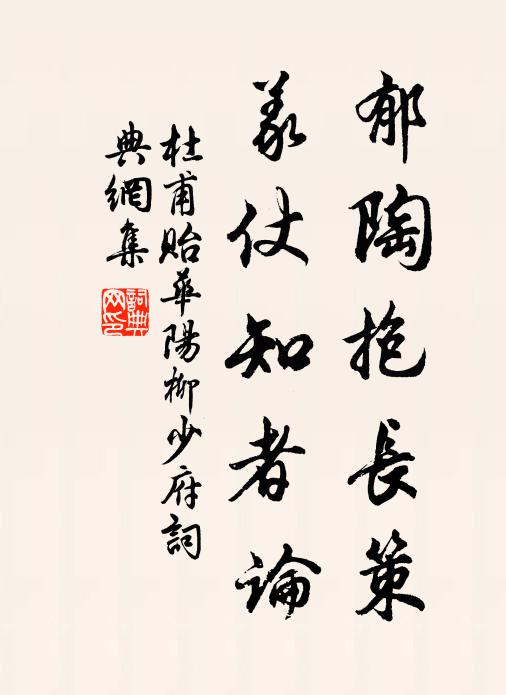 郁陶抱長策
義仗知者論
杜甫貽華陽柳少府詞
典網集
詞典網印